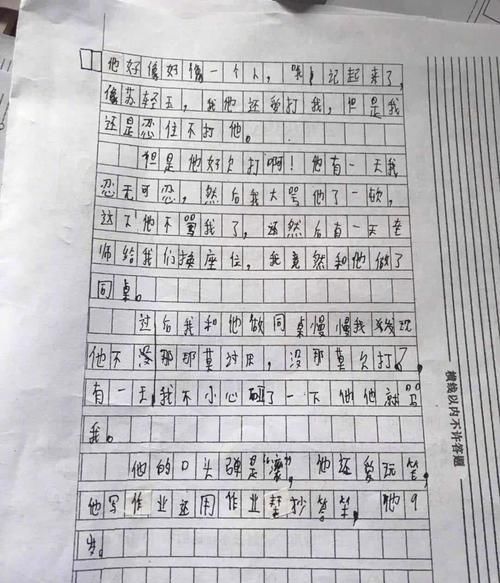 他好像好像一个人，我记起来了，
像苏轻玉，我他还要打我，但是我
还是忍住不打他。
但是他好欠打啊！他有一天我
忍无可忍，然后我大骂他了一软，
这下他不骂我了，还然后有一天老
师给我们换座位，我竟然和他做了
同桌。
过后我和他做同桌慢慢我发现
他不没那那莫讨厌，没那莫欠打了。
有一天，我不小心碰了一下他他就骂
我。
他的口头弹是“滚”，他还爱玩笔，
他写作业还用作业帮抄答案，他9
岁。
横线以内不许答题